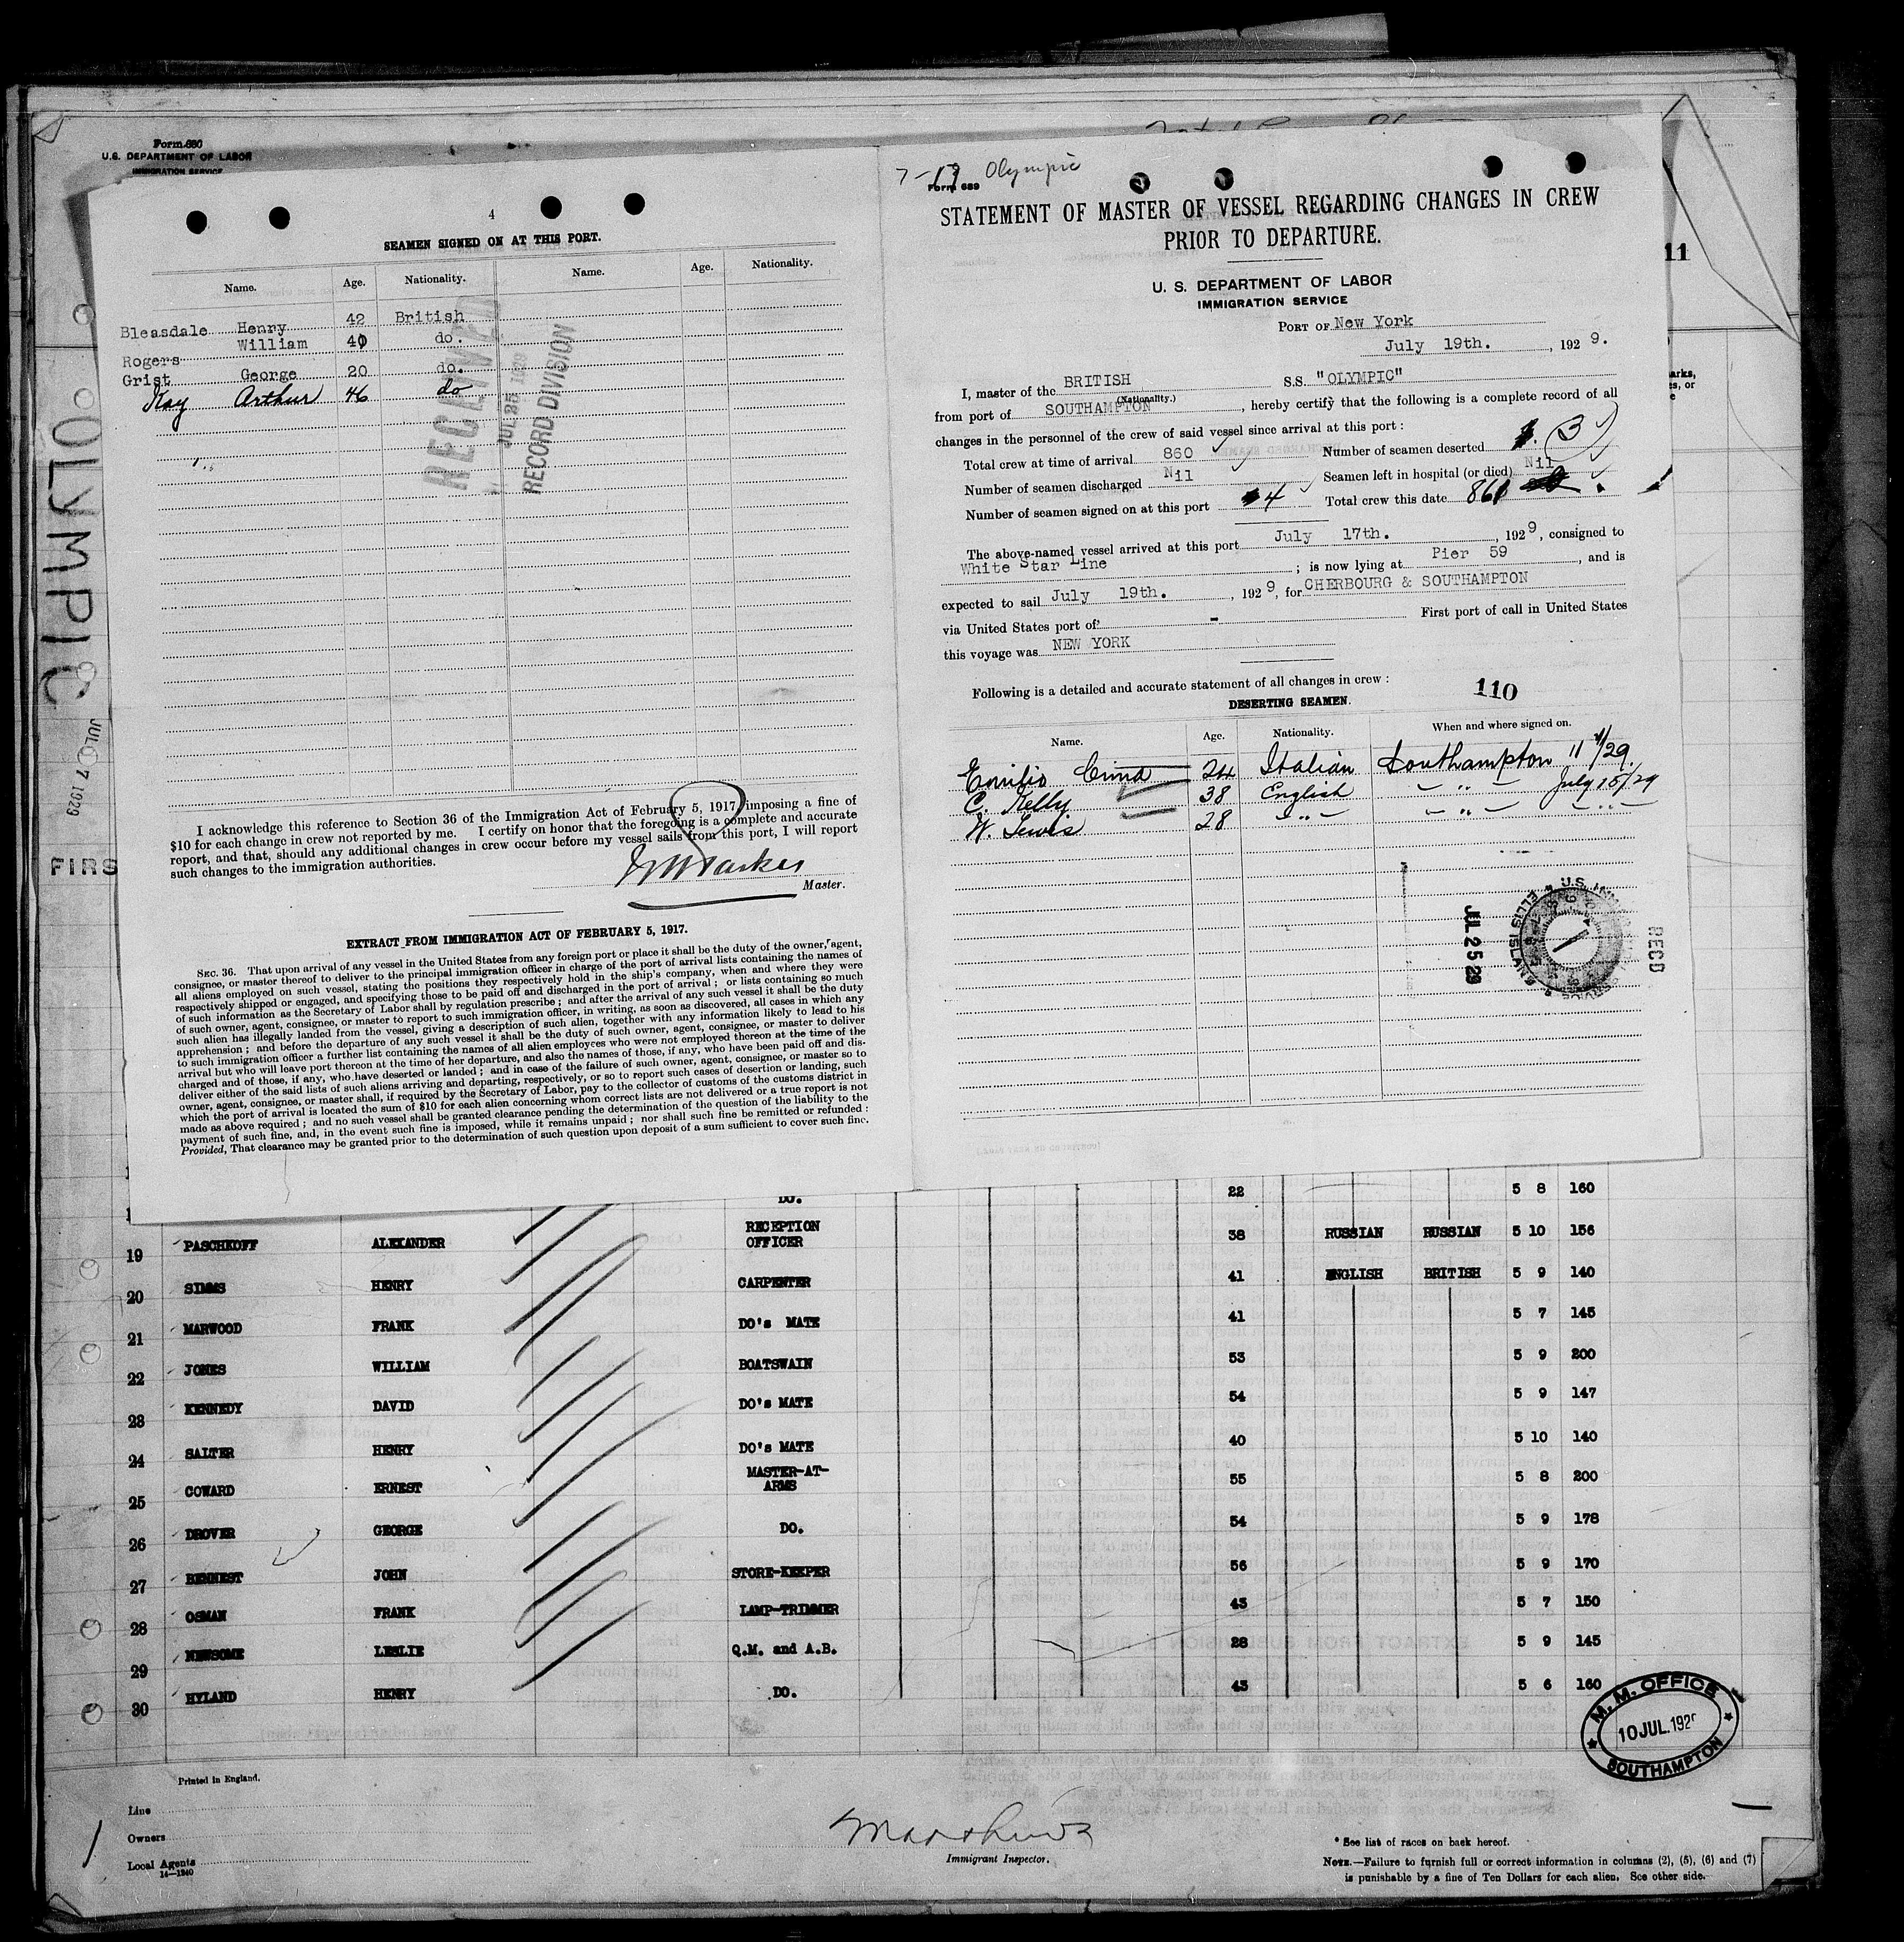 Form 680
U.S. DEPARTMENT OF LABOR
IMMIGRATION SERVICE
11
OLYMPIC
JUL 17 1929
FIRS
4
SEAMEN SIGNED ON AT THIS PORT.
Name. Age. Nationality. Name. Age. Nationality.
Bleasdale Henry 42 British
Rogers William 40 do.
Grist George 20 do.
Kay Arthur 46 do
RECEIVED
JUL 25 1929
RECORD DIVISION
I acknowledge this reference to Section 36 of the Immigration Act of February 5, 1917, imposing a fine of
$10 for each change in crew not reported by me. I certify on honor that the foregoing is a complete and accurate
report, and that, should any additional changes in crew occur before my vessel sails from this port, I will report
such changes to the immigration authorities.
Master.
EXTRACT FROM IMMIGRATION ACT OF FEBRUARY 5, 1917.
SEC. 36. That upon arrival of any vessel in the United States from any foreign port or place it shall be the duty of the owner, agent,
consignee, or master thereof to deliver to the principal immigration officer in charge of the port of arrival lists containing the names of
all aliens employed on such vessel, stating the positions they respectively hold in the ship's company, when and where they were
respectively shipped or engaged, and specifying those to be paid off and discharged in the port of arrival; or lists containing so much
of such information as the Secretary of Labor shall by regulation prescribe; and after the arrival of any such vessel it shall be the duty
of such owner, agent, consignee, or master to report to such immigration officer, in writing, as soon as discovered, all cases in which any
such alien has illegally landed from the vessel, giving a description of such alien, together with any information likely to lead to his
apprehension; and before the departure of any such vessel it shall be the duty of such owner, agent, consignee, or master to deliver
to such immigration officer a further list containing the names of all alien employees who were not employed thereon at the time of the
arrival but who will leave port thereon at the time of her departure, and also the names of those, if any, who have been paid off and dis-
charged and of those, if any, who have deserted or landed; and in case of the failure of such owner, agent, consignee, or master so to
deliver either of the said lists of such aliens arriving and departing, respectively, or so to report such cases of desertion or landing, such
owner, agent, consignee, or master shall, if required by the Secretary of Labor, pay to the collector of customs of the customs district in
which the port of arrival is located the sum of $10 for each alien concerning whom correct lists are not delivered or a true report is not
made as above required; and no such vessel shall be granted clearance pending the determination of the question of the liability to the
payment of such fine, and, in the event such fine is imposed, while it remains unpaid; nor shall such fine be remitted or refunded:
Provided, That clearance may be granted prior to the determination of such question upon deposit of a sum sufficient to cover such fine.
7-17 Olympic
Form 689
STATEMENT OF MASTER OF VESSEL REGARDING CHANGES IN CREW
PRIOR TO DEPARTURE.
U. S. DEPARTMENT OF LABOR
IMMIGRATION SERVICE
PORT OF New York
July 19th., 1929.
I, master of the BRITISH S.S. "OLYMPIC"
(Nationality.)
from port of SOUTHAMPTON, hereby certify that the following is a complete record of all
changes in the personnel of the crew of said vessel since arrival at this port:
Total crew at time of arrival 860 Number of seamen deserted 3
Number of seamen discharged Nil Seamen left in hospital (or died) Nil
Number of seamen signed on at this port 4 Total crew this date 861
The above-named vessel arrived at this port July 17th., 1929, consigned to
White Star Line; is now lying at Pier 59, and is
expected to sail July 19th., 1929, for CHERBOURG & SOUTHAMPTON
via United States port of - First port of call in United States
this voyage was NEW YORK
Following is a detailed and accurate statement of all changes in crew:
110
DESERTING SEAMEN.
Name. Age. Nationality. When and where signed on.
Emilio Cima 24 Italian Southampton
C. Kelly 38 English " July 15/29
W. Lewis 28 " " "
JUL 25 29
RECD
22 5 8 160
DO.
19 PASCHKOFF ALEXANDER RECEPTION OFFICER 38 RUSSIAN RUSSIAN 5 10 156
20 SIMMS HENRY CARPENTER 41 ENGLISH BRITISH 5 9 140
21 MARWOOD FRANK DO's MATE 41 5 7 145
22 JONES WILLIAM BOATSWAIN 53 5 9 200
23 KENNEDY DAVID DO's MATE 54 5 9 147
24 SALTER HENRY DO's MATE 40 5 10 140
25 COWARD ERNEST MASTER-AT-ARMS 55 5 8 200
26 DROVER GEORGE DO. 54 5 9 178
27 BENNEST JOHN STORE-KEEPER 56 5 9 170
28 OSMAN FRANK LAMP-TRIMMER 43 5 7 150
29 NEWSOME LESLIE Q.M. and A.B. 28 5 9 145
30 HYLAND HENRY DO. 43 5 6 160
M. M. OFFICE
10 JUL. 192
SOUTHAMPTON
Printed in England.
Line
Owners
Local Agents
14—1240
Immigrant Inspector.
* See list of races on back hereof.
NOTE.—Failure to furnish full or correct information in columns (2), (5), (6) and (7)
is punishable by a fine of Ten Dollars for each alien. See other side.